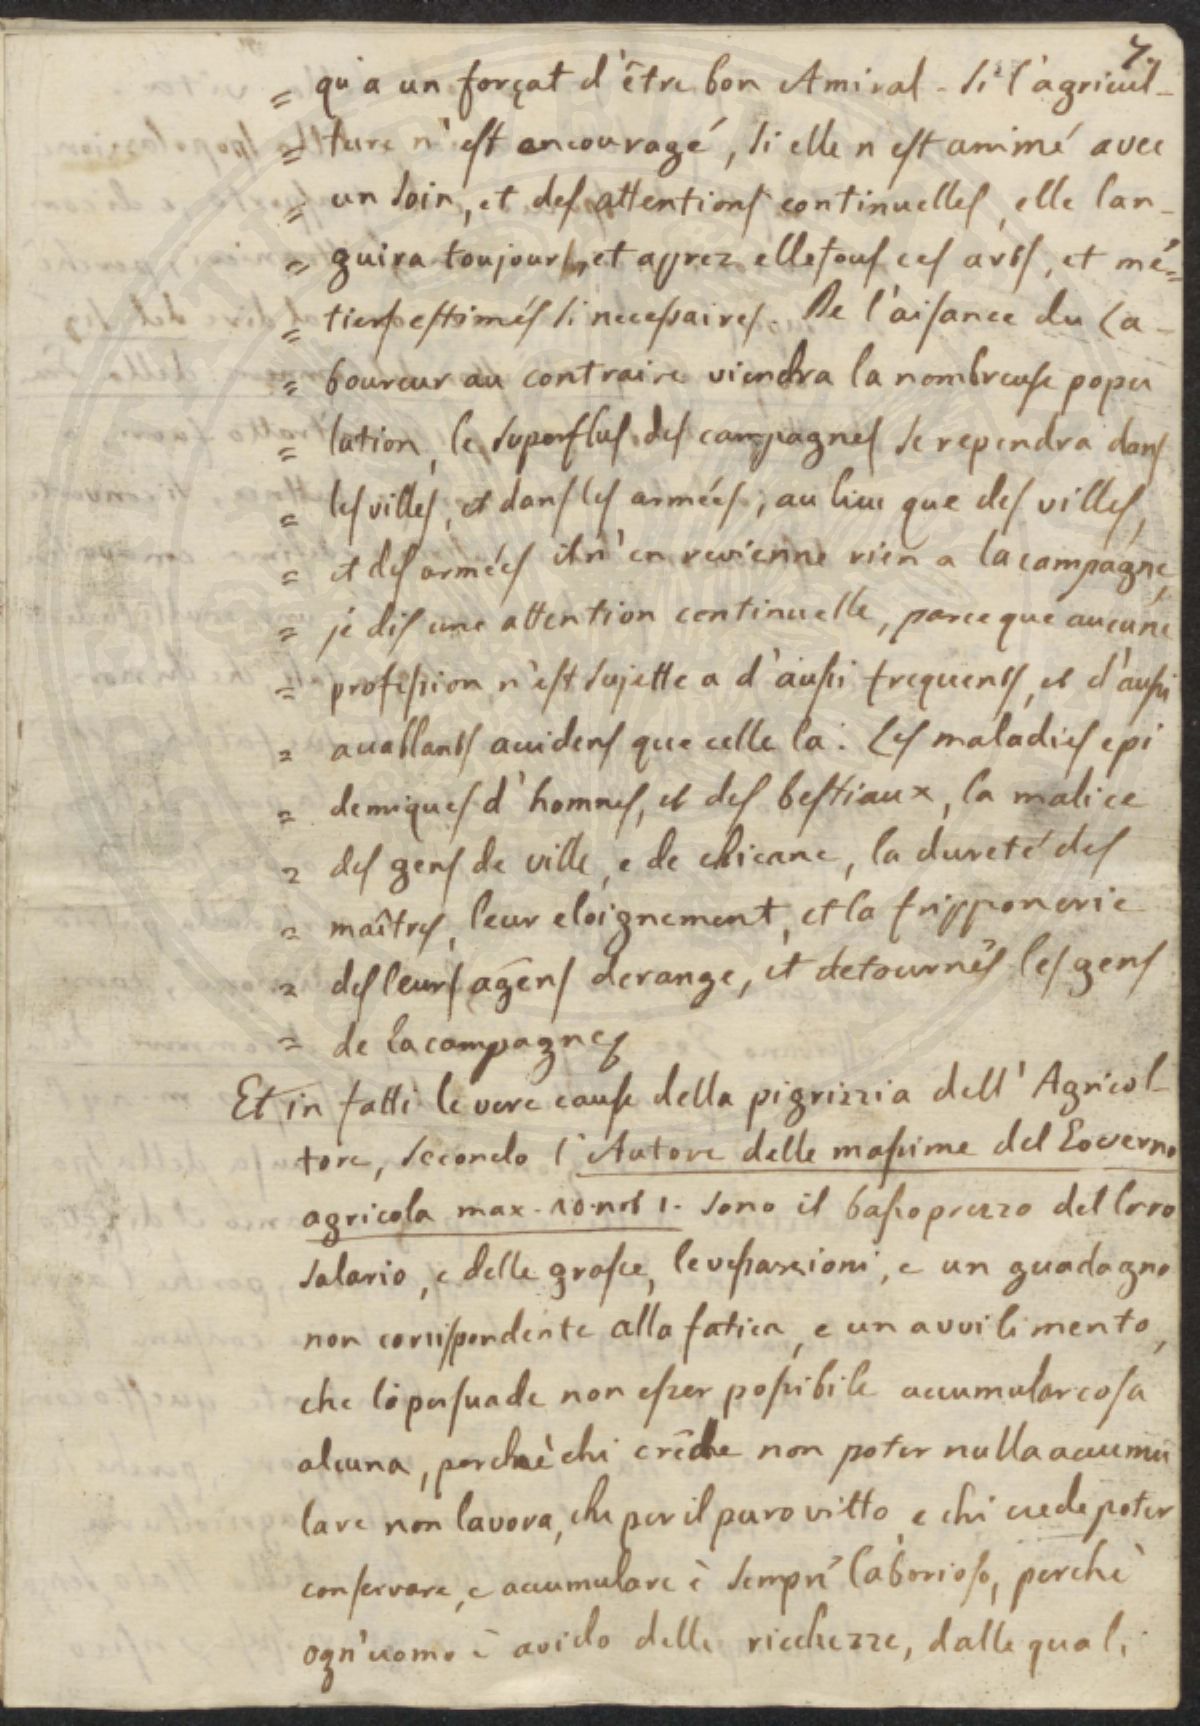 7.
= qu'a un forçat d'être bon Amiral. Si l'agricul-
= ture n'est encouragé, si elle n'est animé avec
= un soin, et des attentions continuelles, elle lan-
= guira toujours, et aprez elle tous ces arts, et mé-
= tiers estimés si necessaires. De l'aisance du La-
= boureur au contraire viendra la nombreuse popu
= lation, le superflus des campagnes se rependra dans
= les villes, et dans les armées, au lieu que des villes,
= et des armées il n'en revienne rien a la campagne,
= je dis une attention continuelle, parce que aucune
= profession n'est sujette a d'aussi frequents, et d'aussi
= accablants accidens que celle la: Les maladies epi
= demiques d'hommes, et des bestiaux, la malice
= des gens de ville, e de chicane, la dureté des
= maîtres, leur eloignement, et la fripponerie
= des leurs agens derange, et detournés les gens
= de la campagne
Et in fatti le vere cause della pigrizzia dell'Agricol-
tore, secondo l'Autore delle massime del Governo
agricola max. 10. not 1. sono il basso prezzo del loro
salario, e delle grasce, le vessazioni, e un guadagno
non corrispondente alla fatica, e un avvilimento,
che lo persuade non esser possibile accumular cosa
alcuna, perchè chi crede non poter nulla accumu
lare non lavora, che per il puro vitto, e chi crede poter
conservare, e accumulare è sempre laborioso, perchè
ogn'uomo è avido delle ricchezze, dalle quali